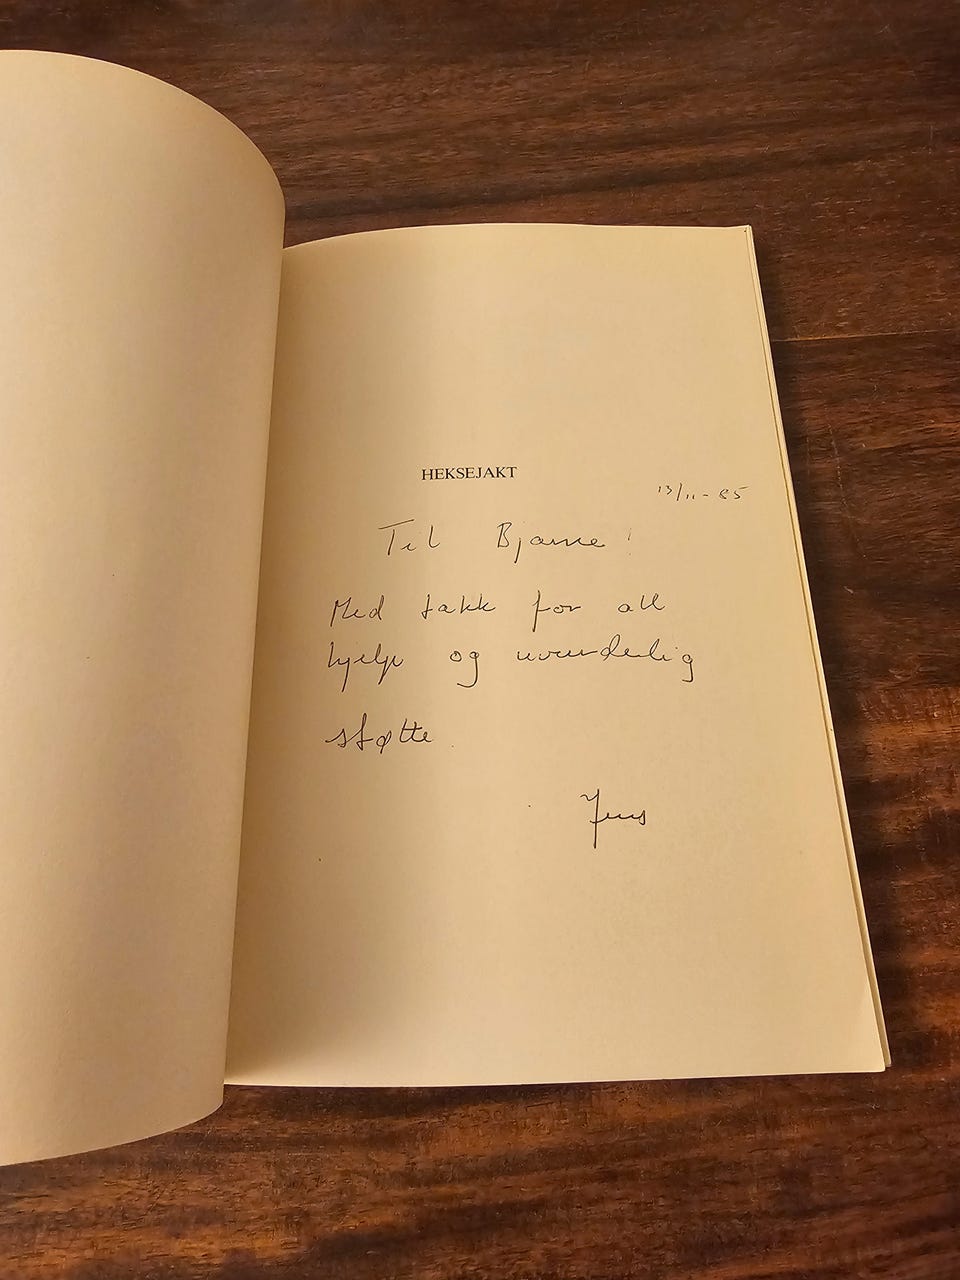 HEKSEJAKT
13/11-85
Til Bjarne!
Med takk for all
hjelp og uvurderlig
støtte.
Jens